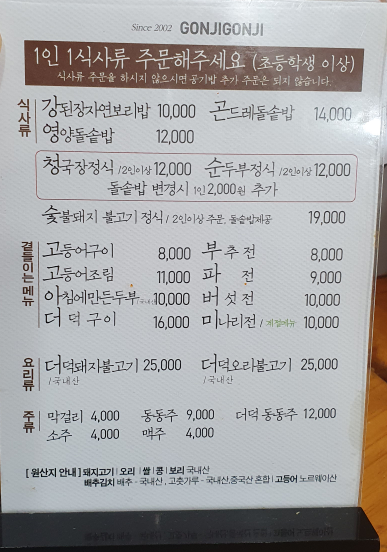 Since 2002 GONJIGONJI
1인 1식사류 주문해주세요 (초등학생 이상)
식사류 주문을 하시지 않으시면 공기밥 추가 주문은 되지 않습니다.
식사류
강된장자연보리밥 10,000 곤드레돌솥밥 14,000
영양돌솥밥 12,000
청국장정식 /2인이상 12,000 순두부정식 /2인이상 12,000
돌솥밥 변경시 1인 2,000원 추가
숯불돼지 불고기 정식 / 2인이상 주문, 돌솥밥제공 19,000
곁들이는 메뉴
고등어구이 8,000 부추전 8,000
고등어조림 11,000 파 전 9,000
아침에만든두부 /국내산 10,000 버섯전 10,000
더덕구이 16,000 미나리전 / 계절메뉴 10,000
요리류
더덕돼지불고기 25,000 더덕오리불고기 25,000
/국내산 /국내산
주류
막걸리 4,000 동동주 9,000 더덕 동동주 12,000
소주 4,000 맥주 4,000
[ 원산지 안내 ] 돼지고기 | 오리 | 쌀 | 콩 | 보리 국내산
배추김치 배추 - 국내산 , 고춧가루 - 국내산,중국산 혼합 | 고등어 노르웨이산